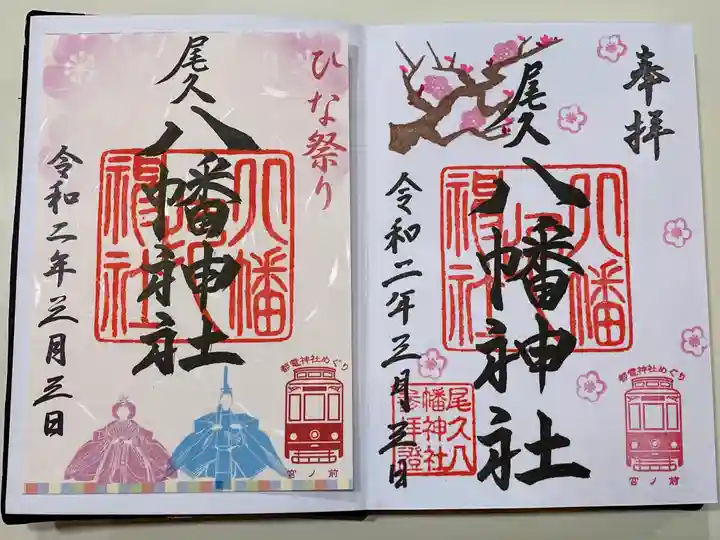 奉拝
尾久
八幡神社
令和二年三月三日
八幡
神社
尾久八
幡神社
参拝證
都電神社めぐり
宮ノ前
ひな祭り
尾久
八幡神社
令和二年三月三日
八幡
神社
都電神社めぐり
宮ノ前